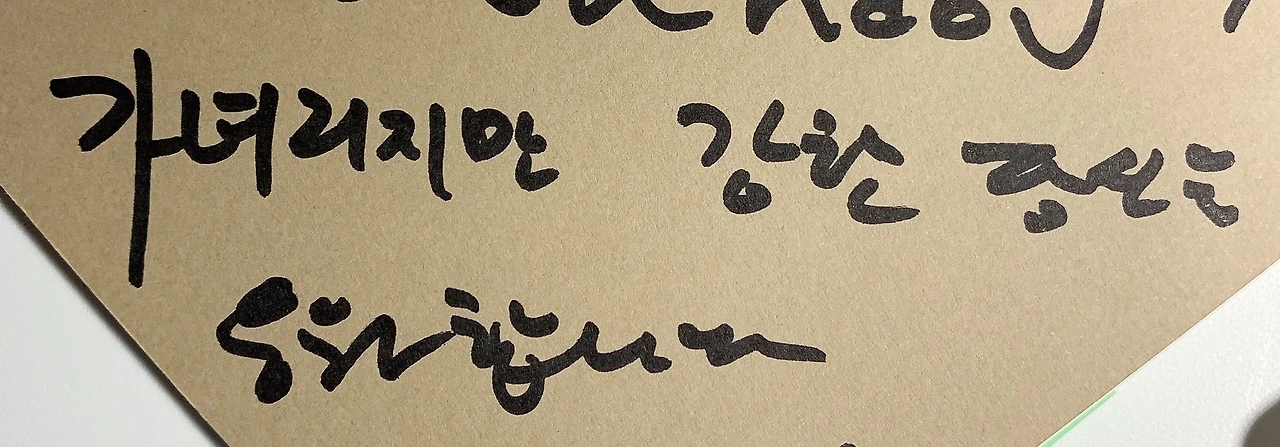 가녀리지만 강한 당신을
응원합니다